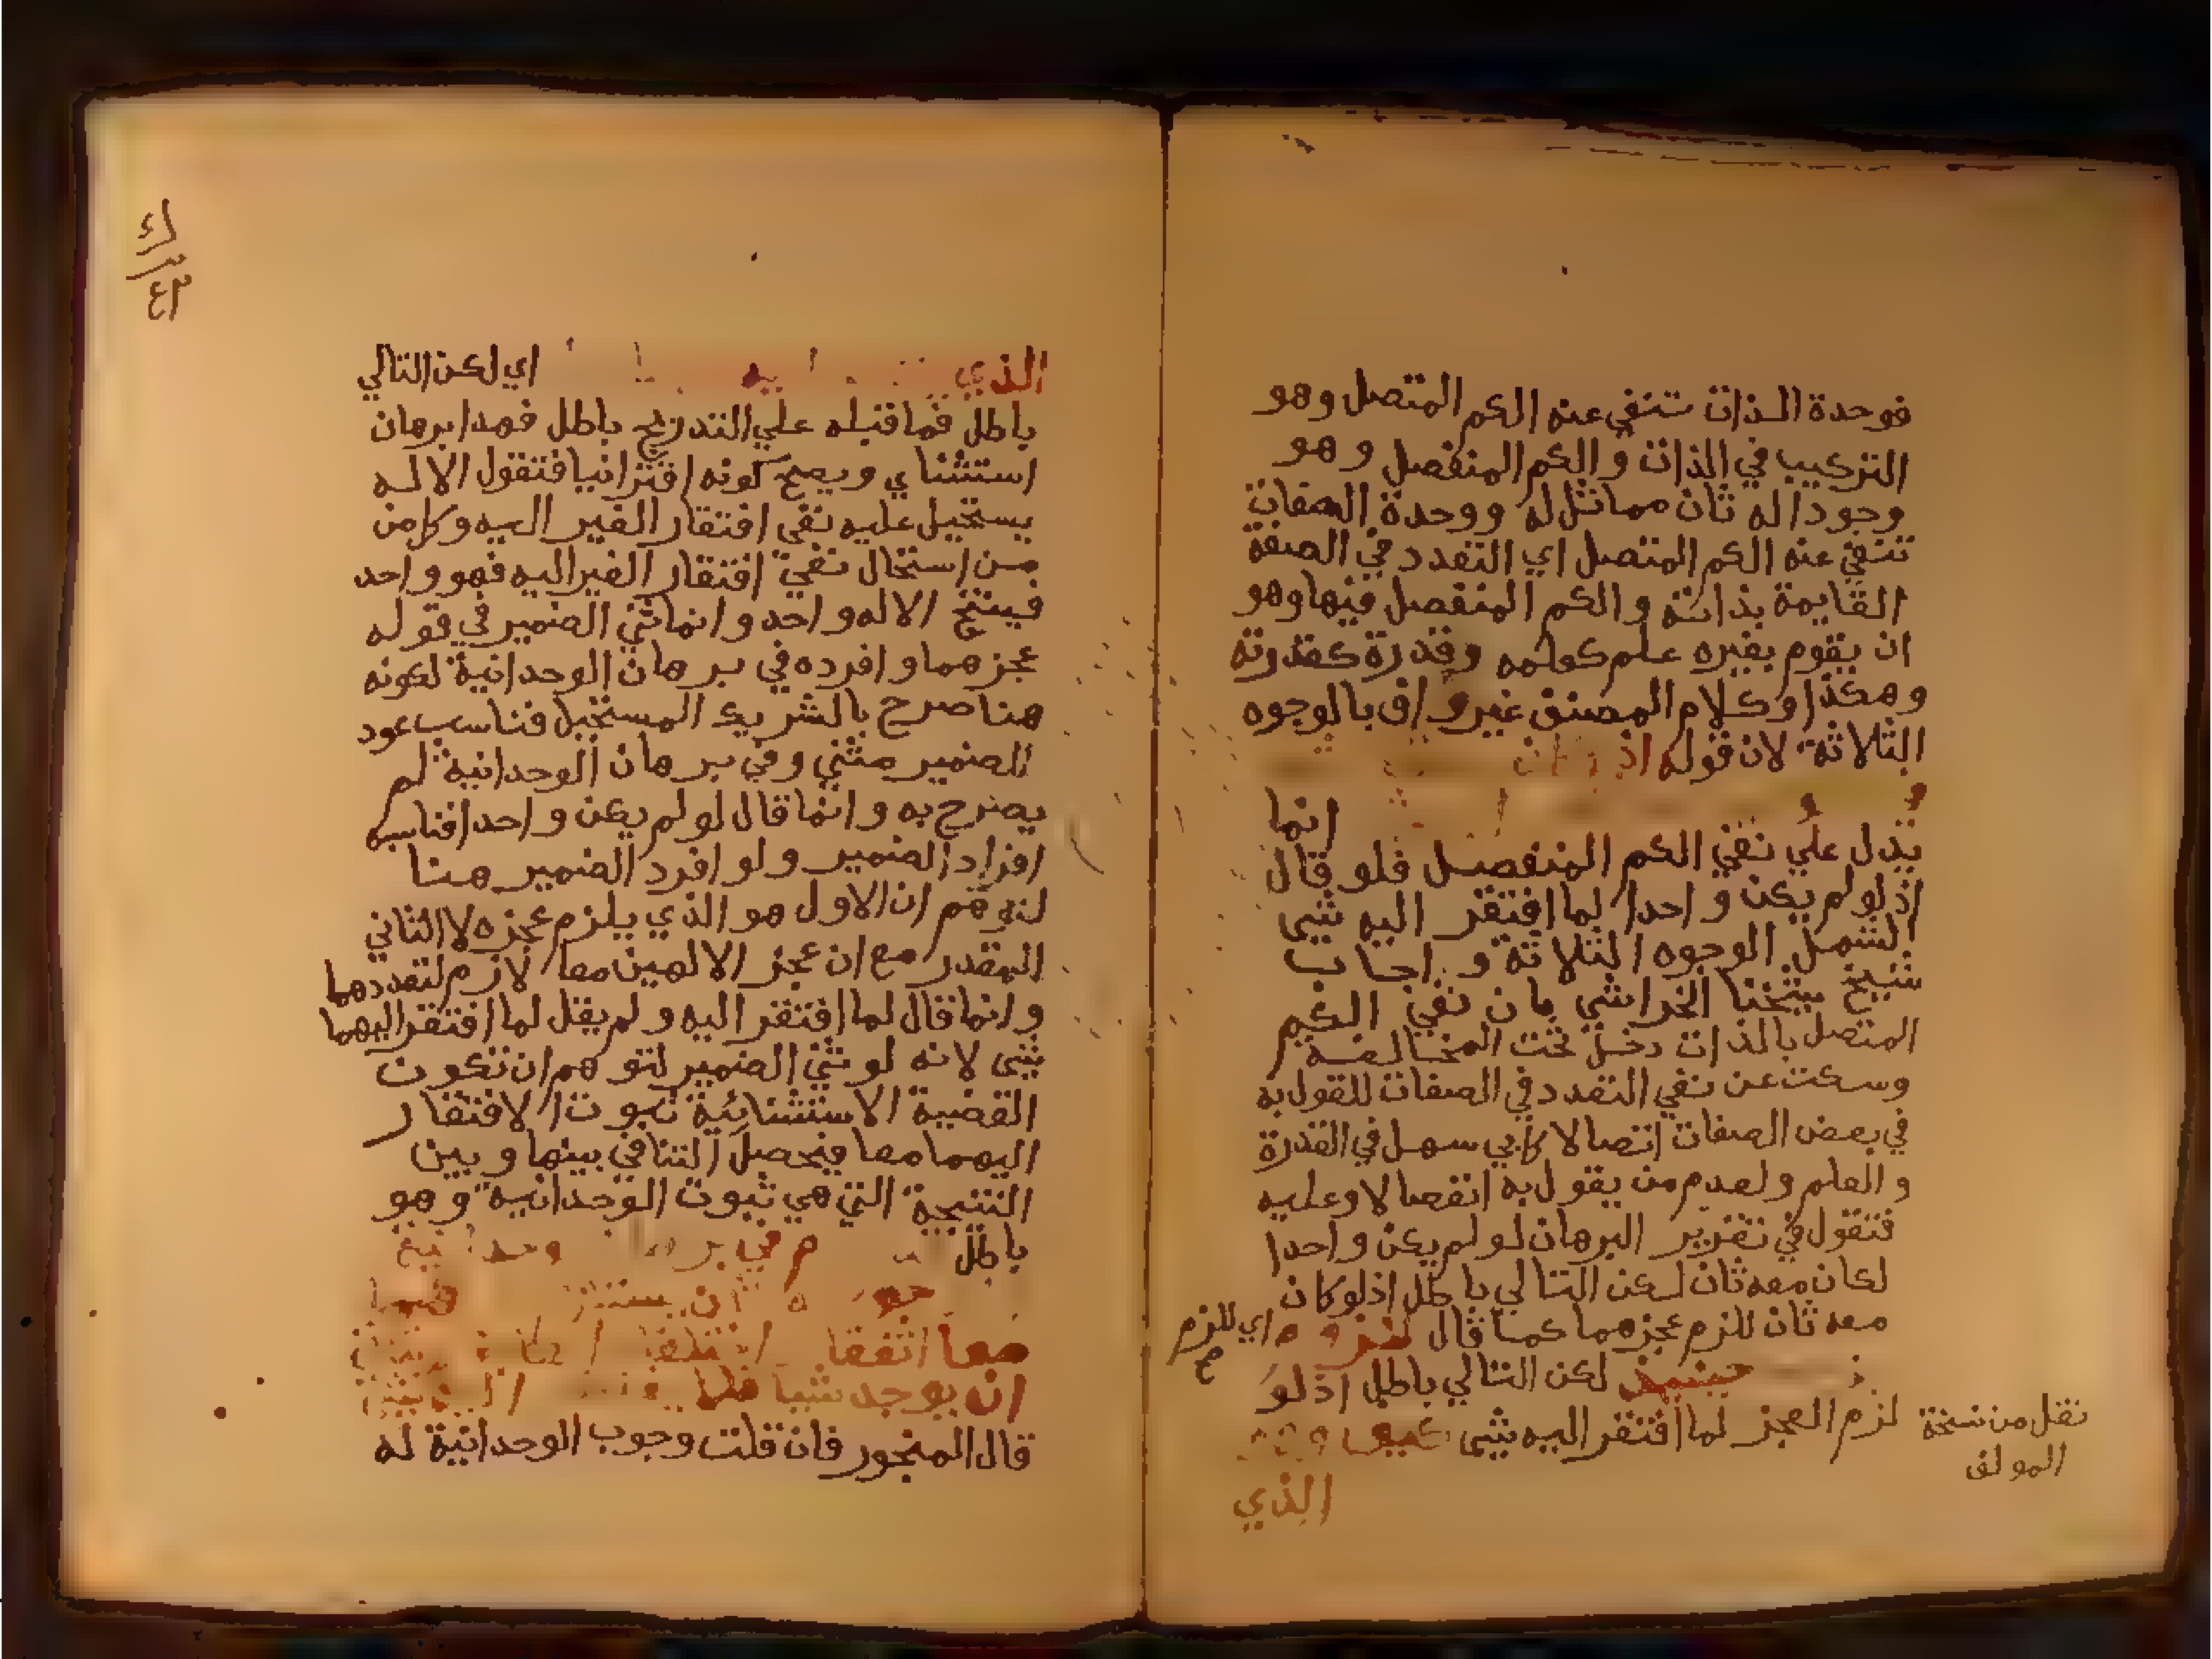 فوحدة الذات تنفي عنه الكم المتصل وهو
التركيب في الذات والكم المنفصل وهو
وجود اله ثان مماثل له ووحدة الصفات
تنفي عنه الكم المتصل اي التعدد في الصفة
القايمة بذاته والكم المنفصل فيها وهو
ان يقوم بغيره علم كعلمه وقدرة كقدرته
وهكذا وكلام المصنف غير واف بالوجوه
الثلاثة لان قوله
انما
يدل علي نفي الكم المنفصل فلو قال
اذ لو لم يكن واحدا لما افتقر اليه شي
لشمل الوجوه الثلاثة واجاب
شيخ شيخنا الخراشي بان نفي الكم
المتصل بالذات دخل تحت المخالفة
وسكت عن نفي التعدد في الصفات للقول به
في بعض الصفات اتصالا كابي سهل في القدرة
والعلم ولعدم من يقول به انفصالا وعليه
فتقول في تقرير البرهان لو لم يكن واحدا
لكان معه ثان لكن التالي باطل اذ لو كان
معه ثان للزم عجزهما كما قال اي للزم
حينيذ لكن التالي باطل اذ لو
لزم العجز لما افتقر اليه شي
الذي
نقل من نسخة
المولف
الذي اي لكن التالي
باطل فما قبله علي التدريج باطل فهدا برهان
استثناي ويصح كونه اقترانيا فتقول الاله
يستحيل عليه نفي افتقار الغير اليه وكل من
من استحال نفي افتقار الغير اليه فهو واحد
فينتج الاله واحد وانما ثني الضمير في قوله
عجزهما وافرده في برهان الوحدانية لكونه
هنا صرح بالشريك المستحيل فناسب عود
الضمير مثني وفي برهان الوحدانية لم
يصرح به وانما قال لو لم يكن واحدا فناسب
افراد الضمير ولو افرد الضمير هنا
لتوهم ان الاول هو الذي يلزم عجزه لا الثاني
المقدر مع ان عجز الالهين معا لازم لتعددهما
وانما قال لما افتقر اليه ولم يقل لما افتقر اليهما
شي لانه لو ثني الضمير لتوهم ان تكون
القضية الاستثنائية ثبوت الافتقار
اليهما معا فيحصل التنافي بينها وبين
النتيجة التي هي ثبوت الوحدانية وهو
باطل في
ان
معا اتفقا
ان يوجد شيا
قال المنجور فان قلت وجوب الوحدانية له